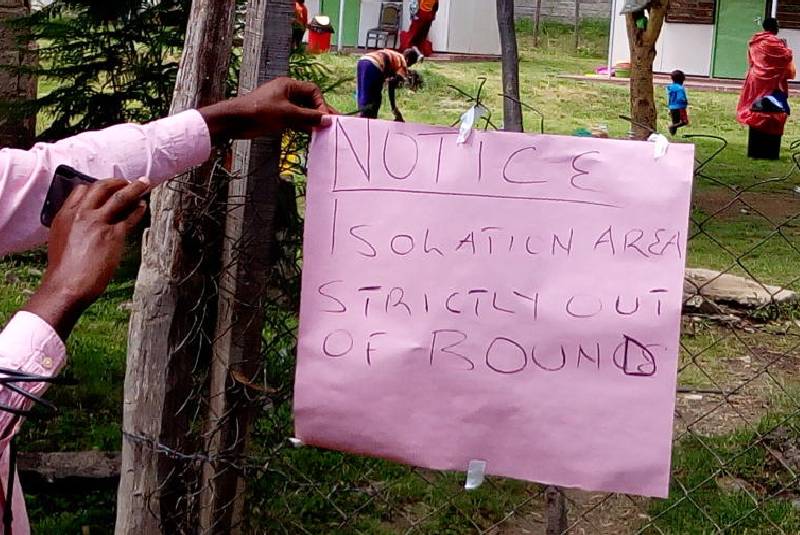 NOTICE
ISOLATION AREA
STRICTLY OUT
OF BOUNDS